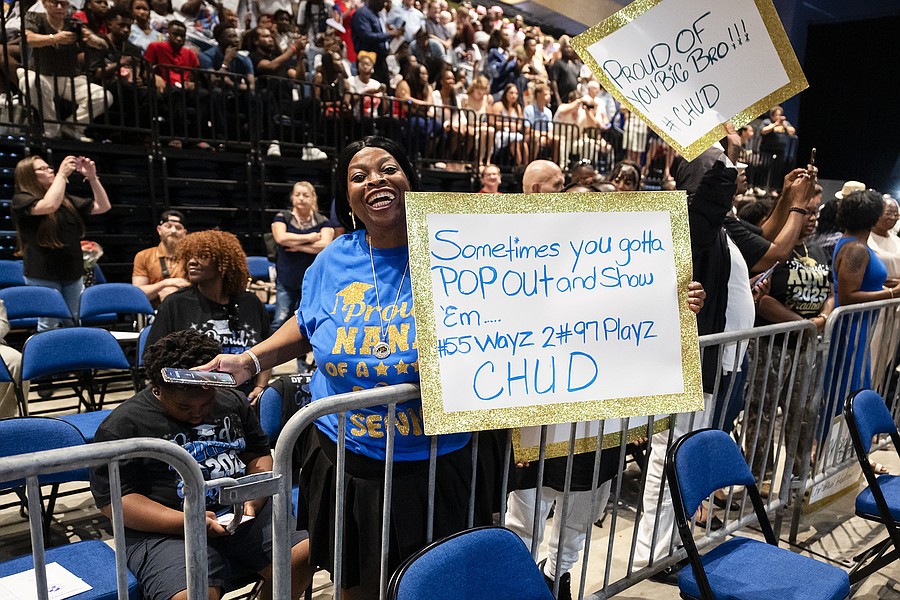 PROUD OF
YOU BIG BRO!!!
#CHUD
Sometimes you gotta
POP OUT and Show
'Em.....
#55 Wayz 2#97 Playz
CHUD
Proud
NANA
OF A
SENIOR